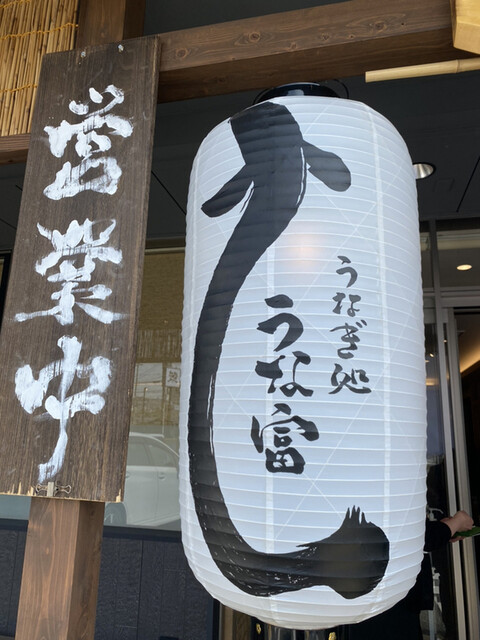 営業中
うなぎ処
うな富